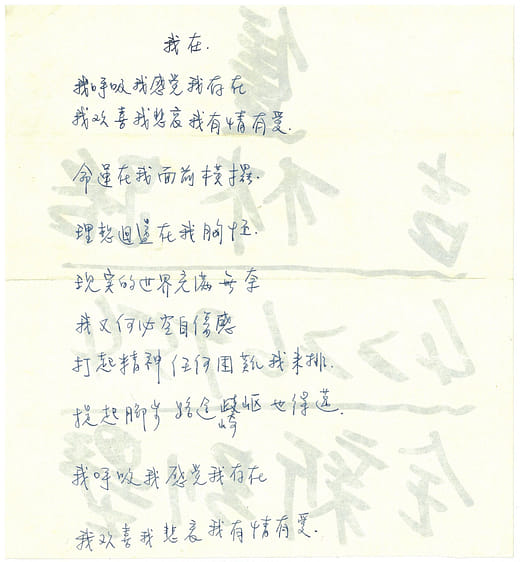 我在.
我呼吸我感觉我存在
我欢喜我悲哀我有情有爱.
命運在我面前擺.
理想迴在我胸怀.
现实的世界充满無奈
我又何必空自傷感
打起精神任何困難我来排.
提起腳步路途崎岖也得邁.
我呼吸我感觉我存在
我欢喜我悲哀我有情有爱.